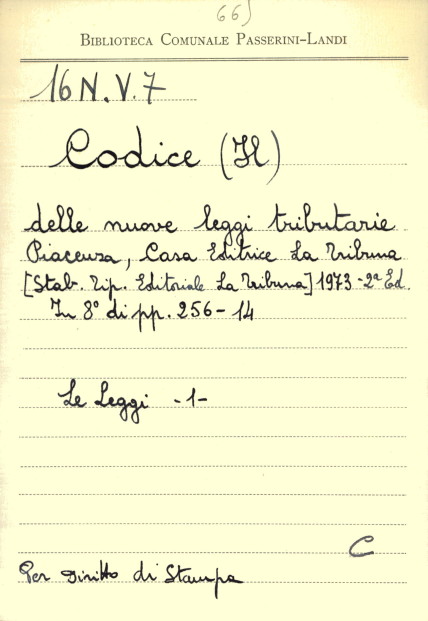 66)
BIBLIOTECA COMUNALE PASSERINI-LANDI
16 N.V.7
Codice (Il)
delle nuove leggi tributarie
Piacenza, Casa Editrice La Tribuna
[Stab. Tip. Editoriale La Tribuna] 1973 - 2ª Ed.
In 8° di pp. 256-14
Le Leggi -1-
C
Per Diritto di Stampa